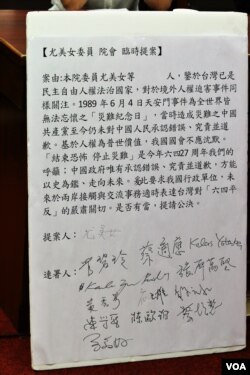 【尤美女委員 院會 臨時提案】
案由:本院委員尤美女等 人,鑒於台灣已是
民主自由人權法治國家,對於境外人權迫害事件同
樣關注。1989 年 6 月 4 日天安門事件為全世界皆
無法忘懷之「災難紀念日」,當時造成災難之中國
共產黨至今仍未對中國人民承認錯誤、究責並道
歉。基於人權為普世價值,我國國會不應沈默。
「結束恐怖 停止災難」是今年六四 27 周年我們的
呼籲;中國政府唯有承認錯誤、究責並道歉,方能
以史為鑑、走向未來。爰此要求我國行政單位,未
來於兩岸接觸與交流事務適時表達台灣對「六四平
反」的嚴肅關切。是否有當,提請公決。
提案人:尤美女
連署人:李麗玲 蔡適應 Kolas Yotaka
陳歐珀
VOA